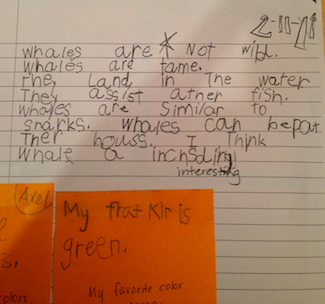 2-11-11
whales are * Not wild.
whales are tame.
they Land in The water
They assist ather fish.
whales are Similar to
snarks. whales can bepat
Ther houss. I Think
Whale a inchsding
interesting
Axel
s.
colors.
My frat Klr is
green.
My favorite color